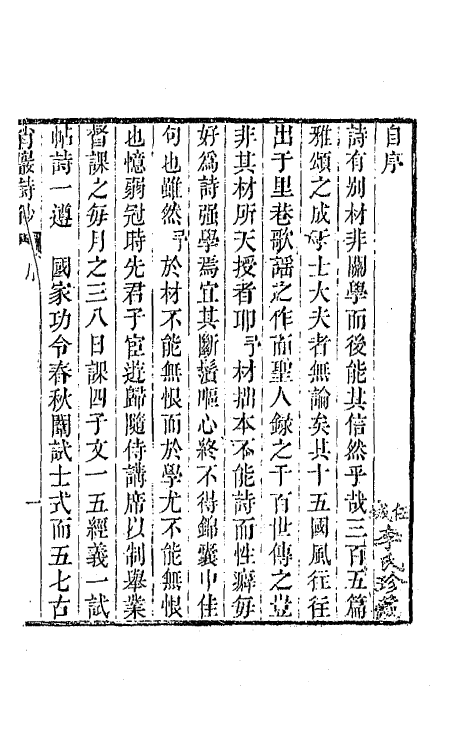 自序
詩有別材非關學而後能其信然乎哉三百五篇
雅頌之成于士大夫者無論矣其十五國風往往
出于里巷歌謡之作而聖人錄之千百世傳之豈
非其材所天授者耶予材拙本不能詩而性癖每
好爲詩强學焉宜其斷鬚嘔心終不得錦囊中佳
句也雖然予於材不能無恨而於學尤不能無恨
也憶弱冠時先君子宦遊歸隨侍講席以制舉業
督課之每月之三八日課四子文一五經義一試
帖詩一遵 國家功令春秋闈試士式而五七古
巖詩鈔 序 一
李氏珍藏